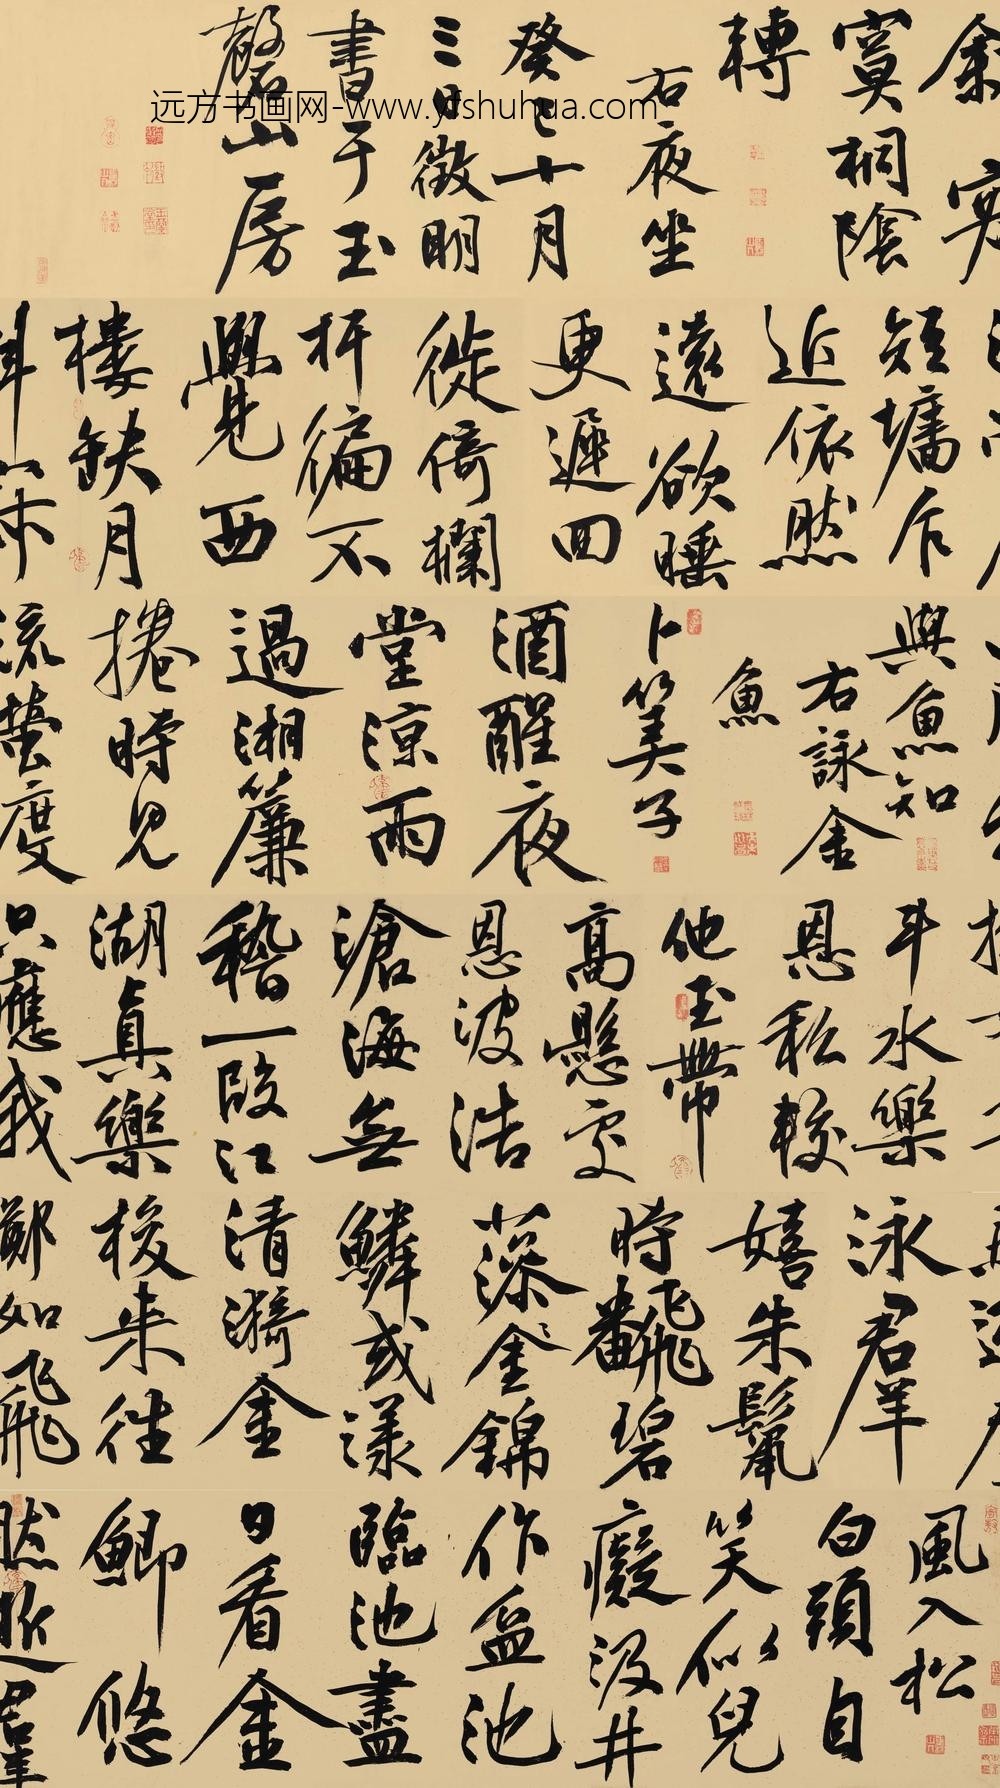 远方书画网-www.yfshuhua.com
寞桐陰
轉
右夜坐
癸巳十月
三日徵明
書于玉
磬山房
短墻乍
近依然
遠欲睡
更遲回
徙倚欄
杆徧不
覺西
樓缺月
與魚知
右詠金
魚
卜筭子
酒醒夜
堂涼雨
過湘簾
捲時見
流螢度
斗水樂
恩私較
他玉帶
高懸處
恩波浩
滄海無
稽一段江
湖真樂
只應我
泳群
嬉朱鬛
時飜碧
藻金錦
鱗或漾
清漪金
梭来往
擲如飛
風入松
白頭自
笑似兒
癡汲井
作盆池
臨池盡
日看金
鯽悠